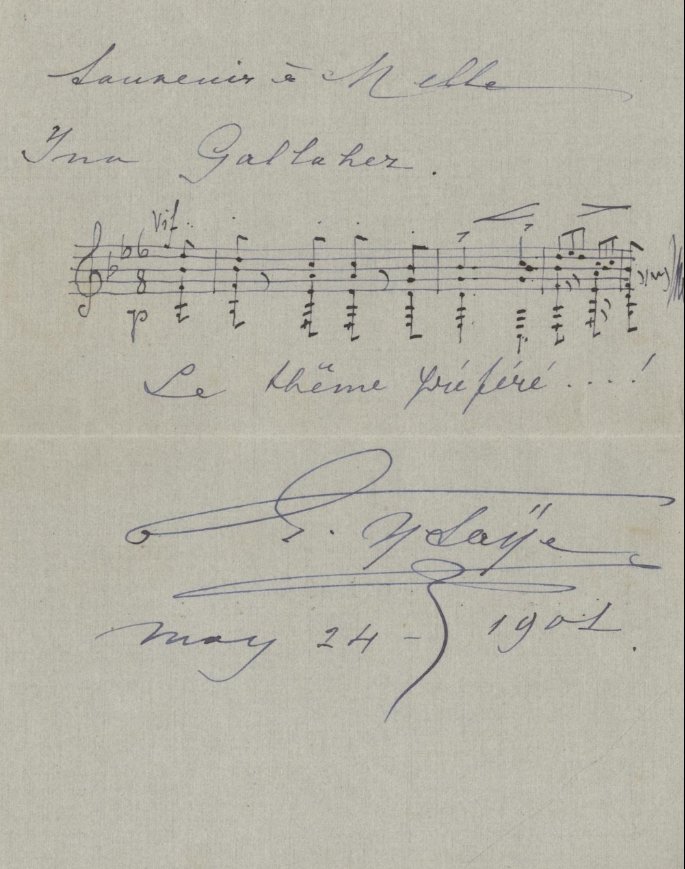 Souvenir à Melle
Yna Gallaher.
Vif.
6
8
p
Le thême préféré....!
E. Ysaÿe
may 24 - 1901.